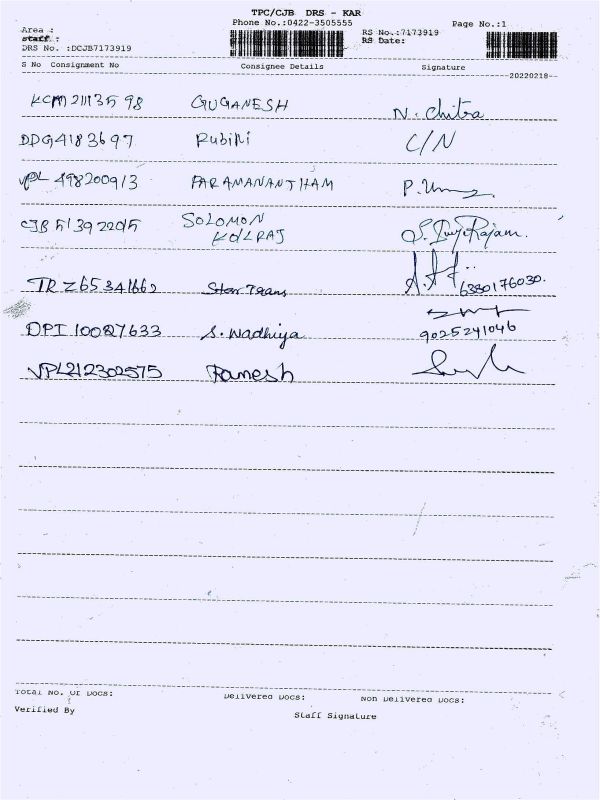 TPC/CJB DRS - KAR
Phone No.:0422-3505555 Page No.:1
Area :
staff :
DRS No. :DCJB7173919
RS No.:7173919
RS Date:
S No Consignment No Consignee Details Signature
20220218
KCM21113598 GUGANESH N. Chitra
DDG4183697 Rubini C/N
VPL 498200913 PARAMANANTHAM
CJB513922015 SOLOMON
KOILRAJ
TRZ65341662 Star Trans 6380176030.
DPI10027633 S. Wadhiya 9025241046
VPL212302575 Ramesh
Total No. Of Docs: Delivered Docs: Non Delivered Docs:
Verified By Staff Signature